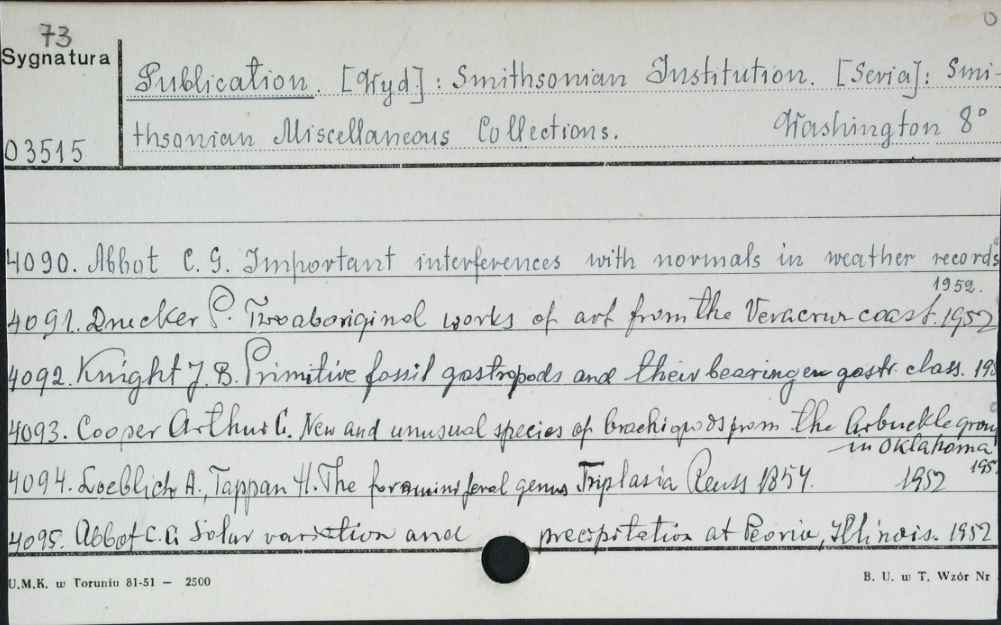 73
Sygnatura
Publication. [Wyd.]: Smithsonian Institution. [Seria]: Smi-
thsonian Miscellaneous Collections. Washington 8°
03515
4090. Abbot C. G. Important interferences with normals in weather records
1952.
4091. Drucker P. Two aboriginal works of art from the Veracruz coast. 1952
4092. Knight J. B. Primitive fossil gastropods and their bearing on gastr. class. 195
4093. Cooper Arthur G. New and unusual species of brachiopods from the Arbuckle group
in Oklahoma
195
4094. Loeblich A., Tappan H. The foraminiferal genus Triplasia Reuss 1854. 1952
4095. Abbot C. G. Solar variation and precipitation at Peoria, Illinois. 1952
U.M.K. w Toruniu 81-51 — 2500
B. U. w T. Wzór Nr